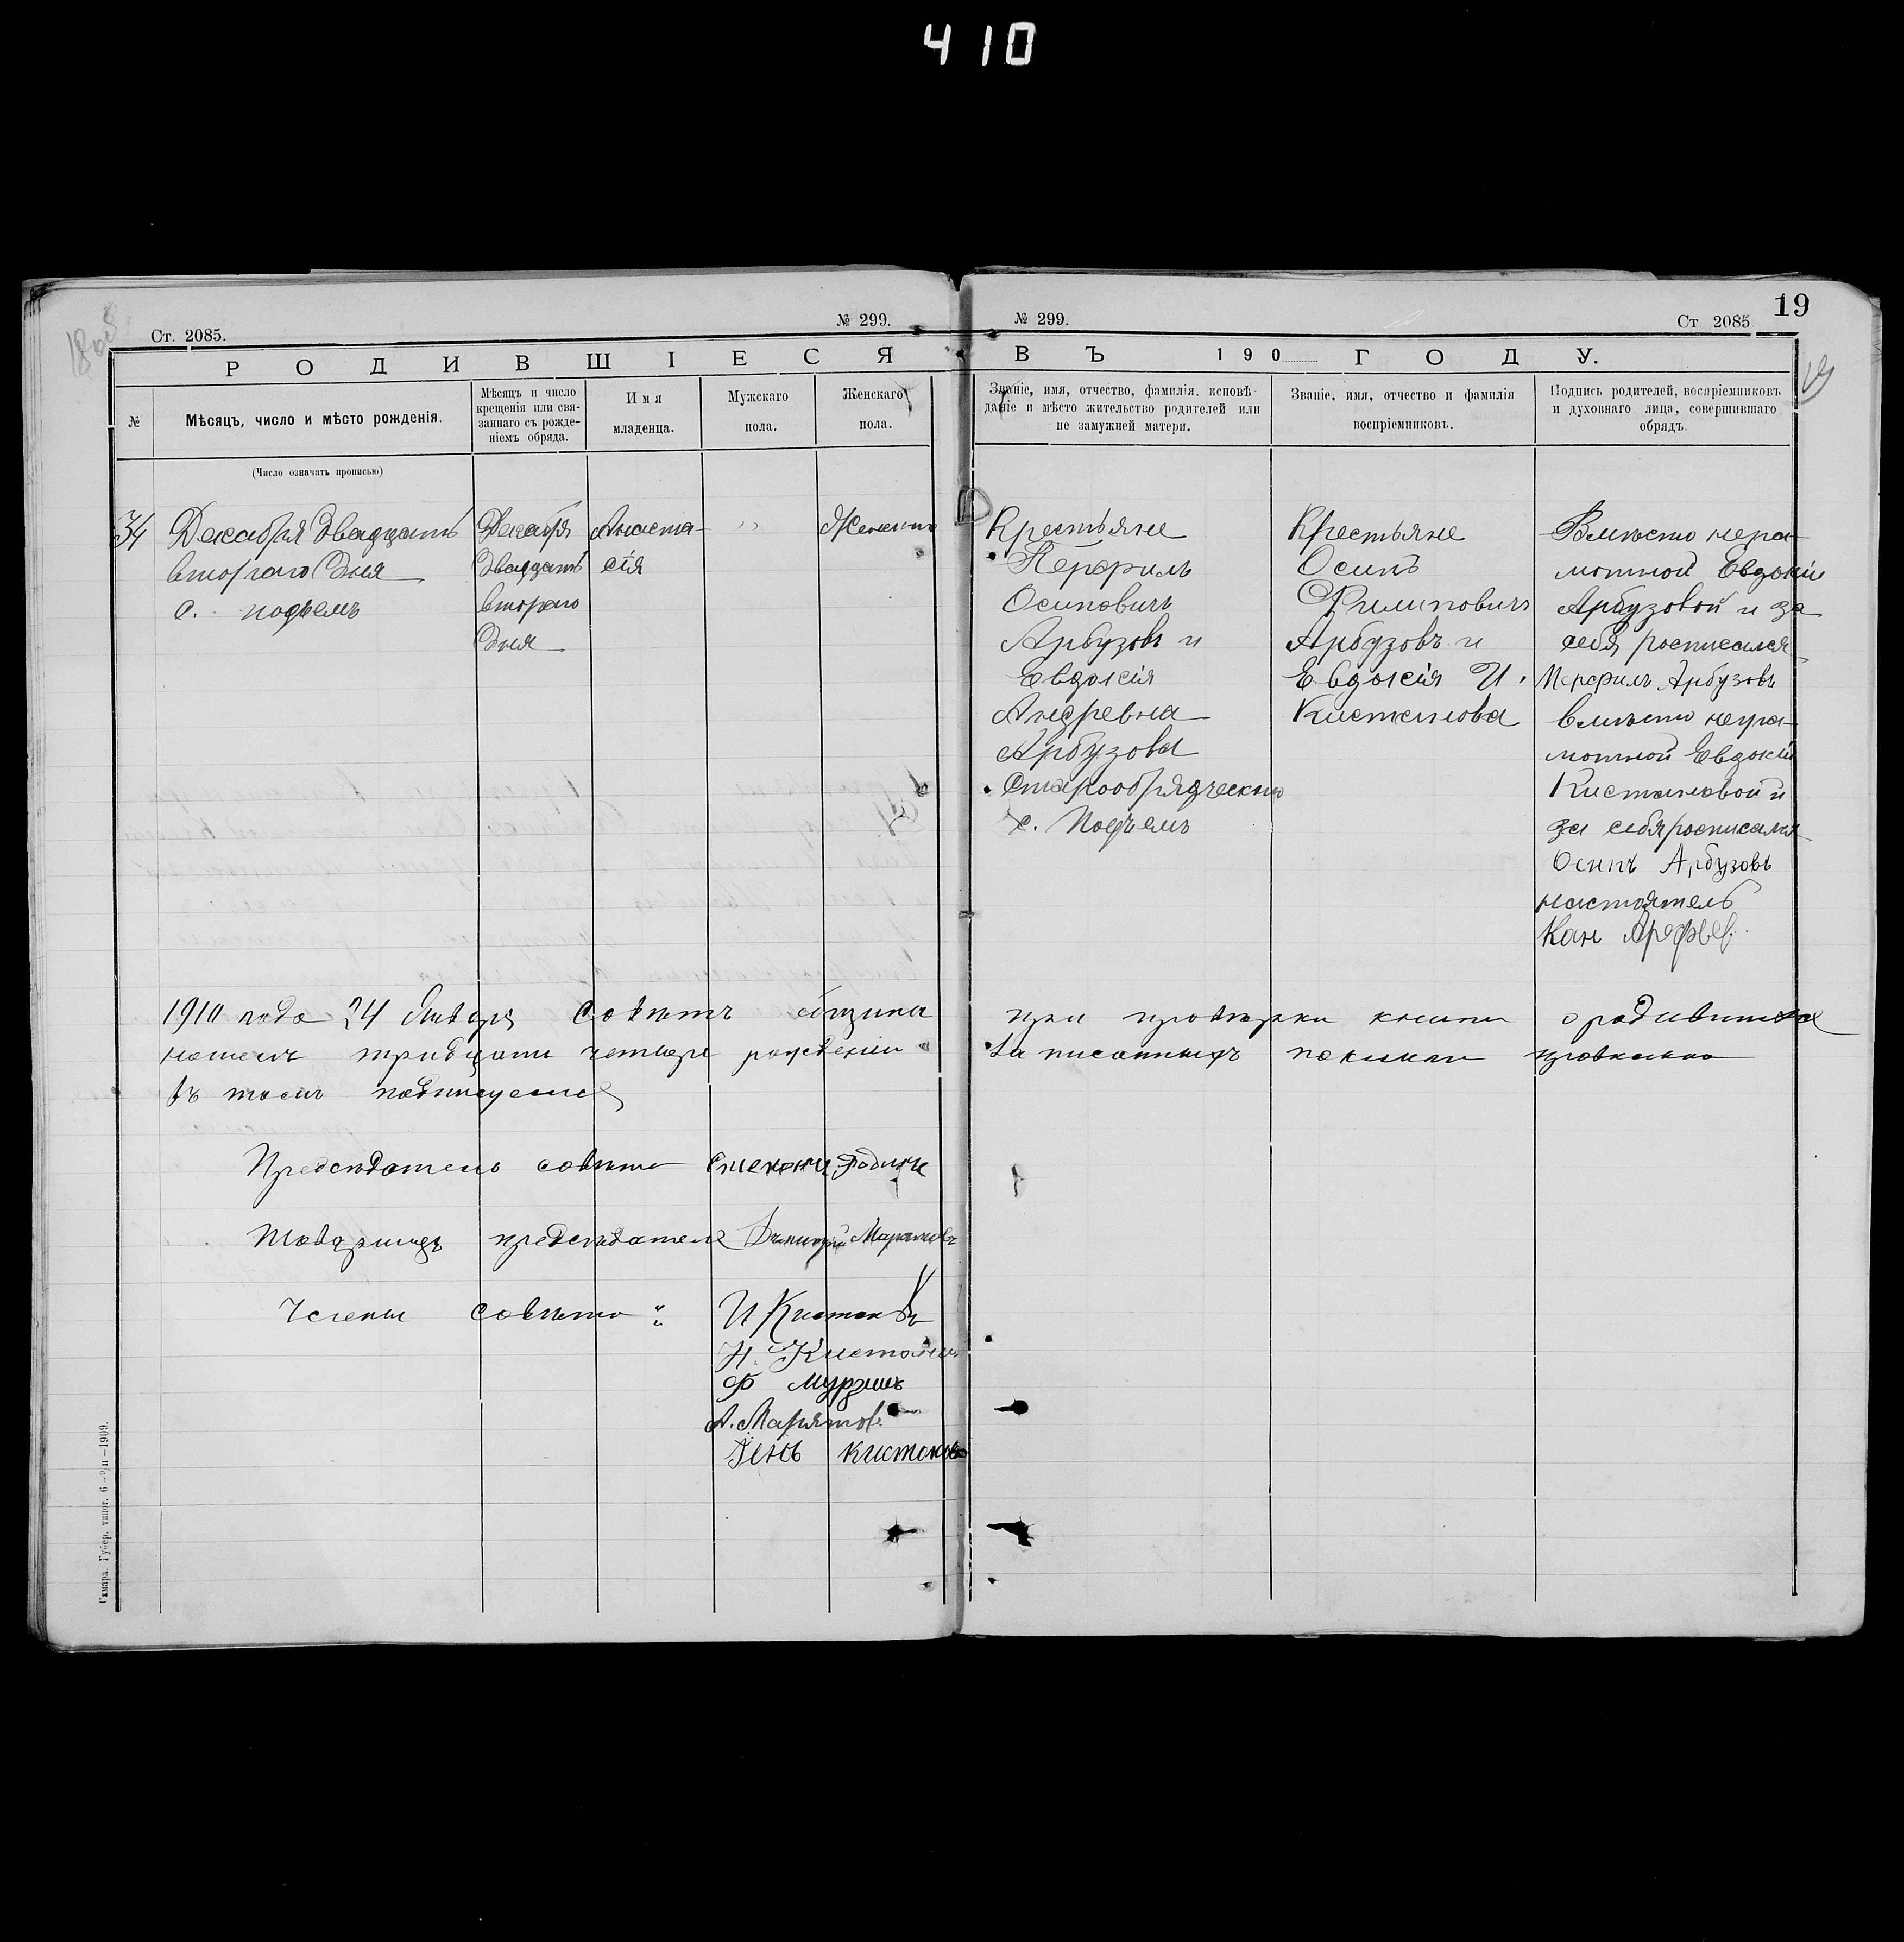 410
19
Ст. 2085.
№ 299.
№ 299.
Ст 2085
РОДИВШІЕСЯ ВЪ 190 ГОДУ.
№
Мѣсяцъ, число и мѣсто рожденія.
Мѣсяцъ и число
крещенія или свя-
заннаго съ рожде-
ніемъ обряда.
Имя
младенца.
Мужскаго
пола.
Женскаго
пола.
Званіе, имя, отчество, фамилія, исповѣ-
даніе и мѣсто жительство родителей или
не замужней матери.
Званіе, имя, отчество и фамилія
воспріемниковъ.
Подпись родителей, воспріемниковъ
и духовнаго лица, совершившаго
обрядъ.
(Число означать прописью)
34
Декабря Двадцать
второго Дня
с. подъемъ
Декабря
Двадцать
второго
Дня
Анаста-
сія
Женскаго
Крестьяне
Перфилъ
Осиповичъ
Арбузовъ и
Евдокія
Андревна
Арбузова
Старообрядческаго
с. Подъемъ
Крестьяне
Осипъ
Филиповичъ
Арбузовъ и
Евдокія И.
Кистанова
Вмѣсто негра-
мотной Евдокіи
Арбузовой и за
себя росписался
Перфилъ Арбузовъ
вмѣсто негра-
мотной Евдокіи
Кистановой и
за себя росписался
Осипъ Арбузовъ
настоятель
Арефьев
1910 года 24 Января Совѣтъ общины при провѣрки книги о родившихся
тридцати четыре рожденіи записанныхъ
въ томъ подписуемся
Предсѣдатель совѣта Родинъ
Товарищъ предсѣдателя Дмитрий
Члены совѣта
И Кистановъ
Н. Кистановъ
Ф
А.
Кистановъ
Самара. Губер. типог. 1909.